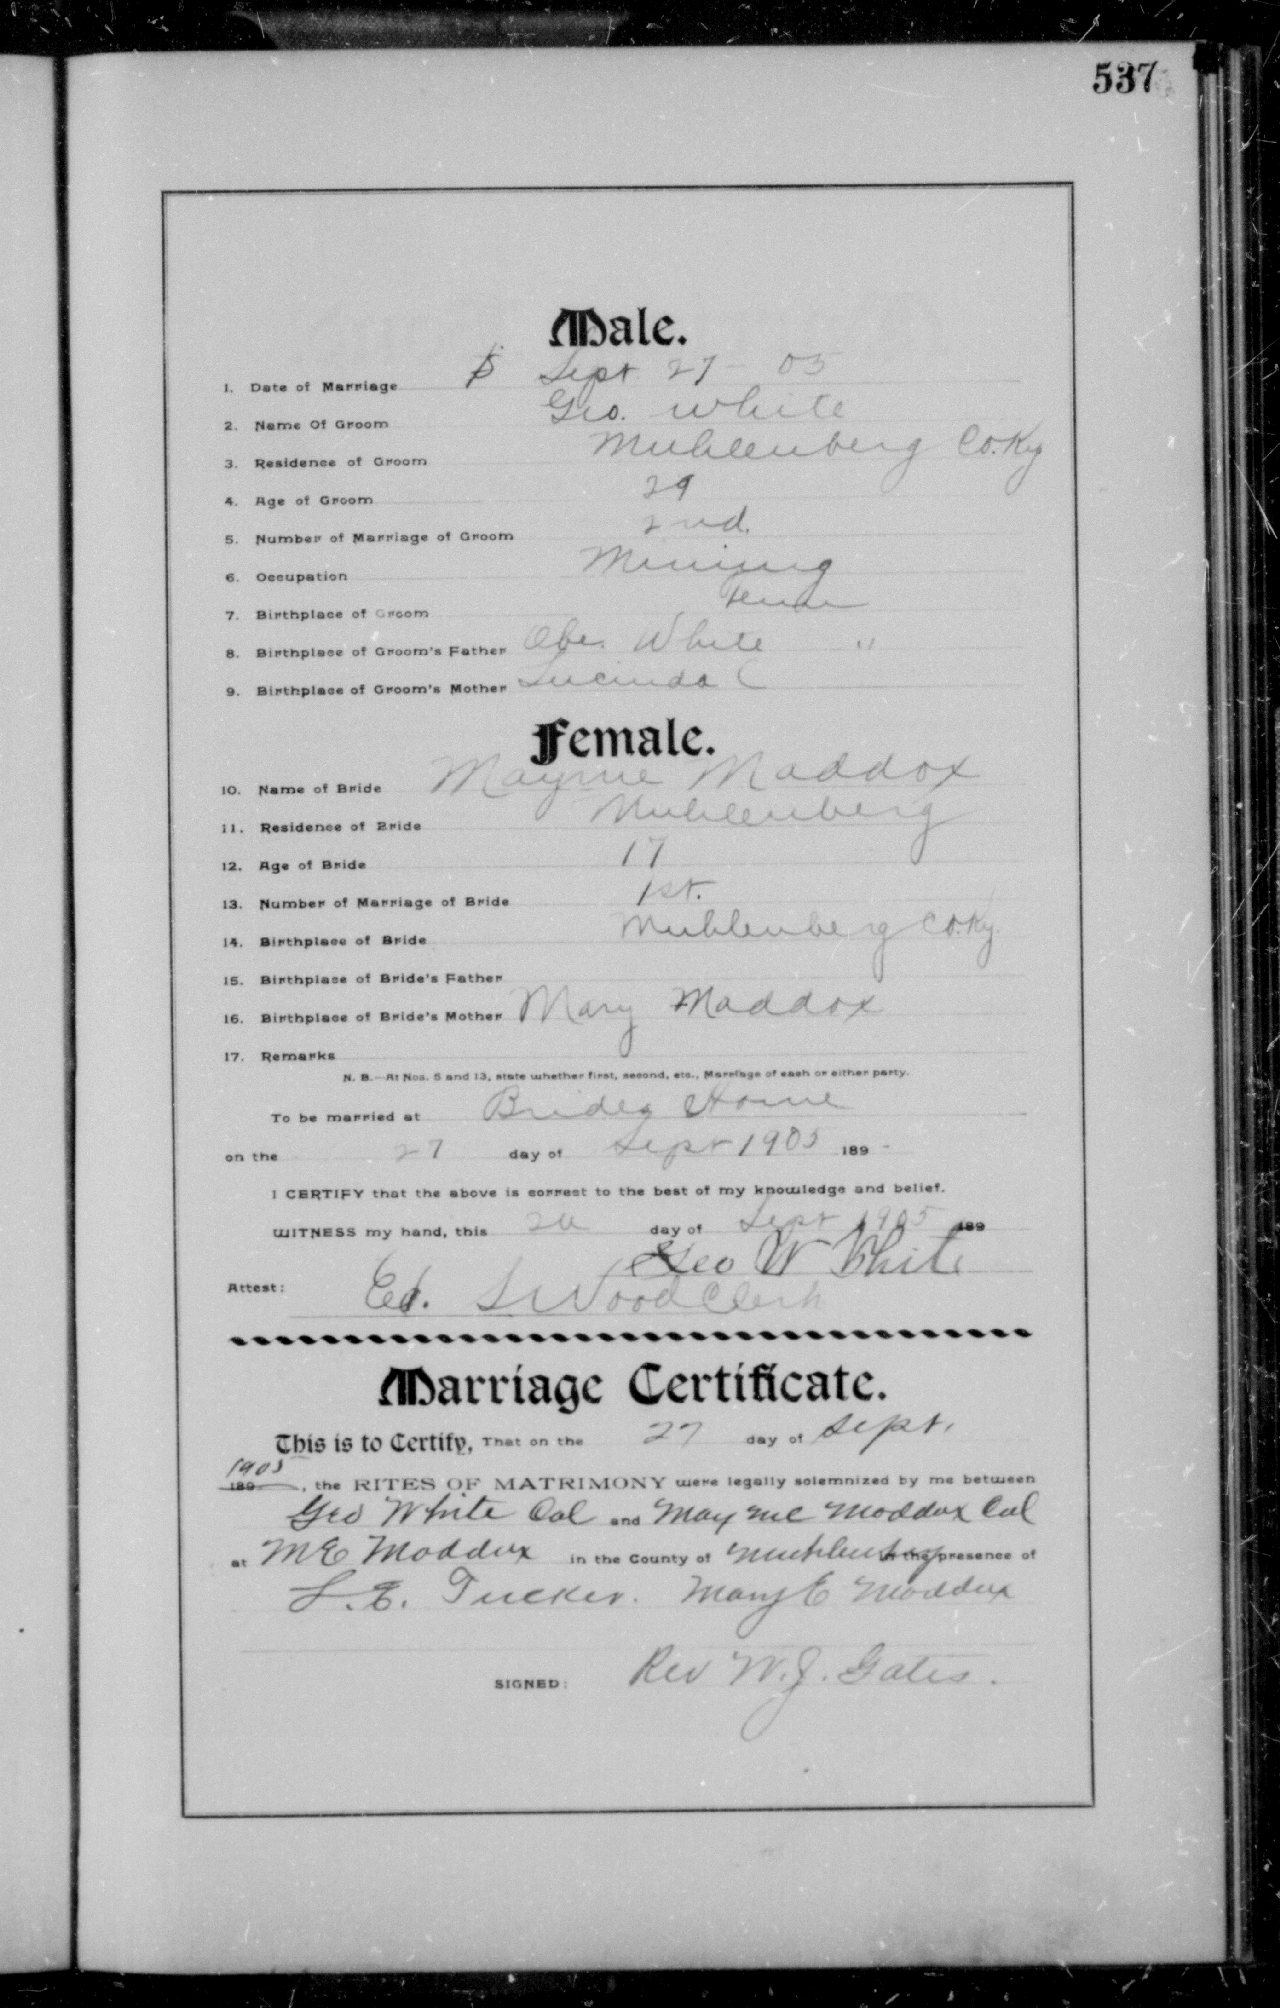 537
Male.
1. Date of Marriage Sept 27 - 05
2. Name Of Groom Geo. White
3. Residence of Groom Muhlenberg Co. Ky
4. Age of Groom 29
5. Number of Marriage of Groom 2nd.
6. Occupation Mining
7. Birthplace of Groom Tenn
8. Birthplace of Groom's Father Abe. White "
9. Birthplace of Groom's Mother Lucinda
Female.
10. Name of Bride Mayme Maddox
11. Residence of Bride Muhlenberg
12. Age of Bride 17
13. Number of Marriage of Bride 1st.
14. Birthplace of Bride Muhlenberg Co. Ky.
15. Birthplace of Bride's Father
16. Birthplace of Bride's Mother Mary Maddox
17. Remarks
N. B.—At Nos. 5 and 13, state whether first, second, etc., Marriage of each or either party.
To be married at Brides Home
on the 27 day of Sept 1905 189 -
I CERTIFY that the above is correct to the best of my knowledge and belief.
WITNESS my hand, this day of Sept 1905 189
Geo W White
Attest: Ed. S Wood Clerk
Marriage Certificate.
This is to Certify, That on the 27 day of Sept.
1905
189 , the RITES OF MATRIMONY were legally solemnized by me between
Geo White Col and Mayme Moddox Col
at M E Moddox in the County of Muhlenberg in the presence of
L. E. Tucker. Mary E Moddox
SIGNED: Rev W. J. Gates.